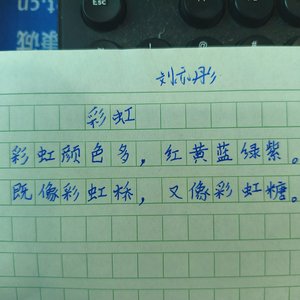 t.cn
Esc
刘亦彤
彩虹
彩虹颜色多，红黄蓝绿紫。
既像彩虹桥，又像彩虹糖。